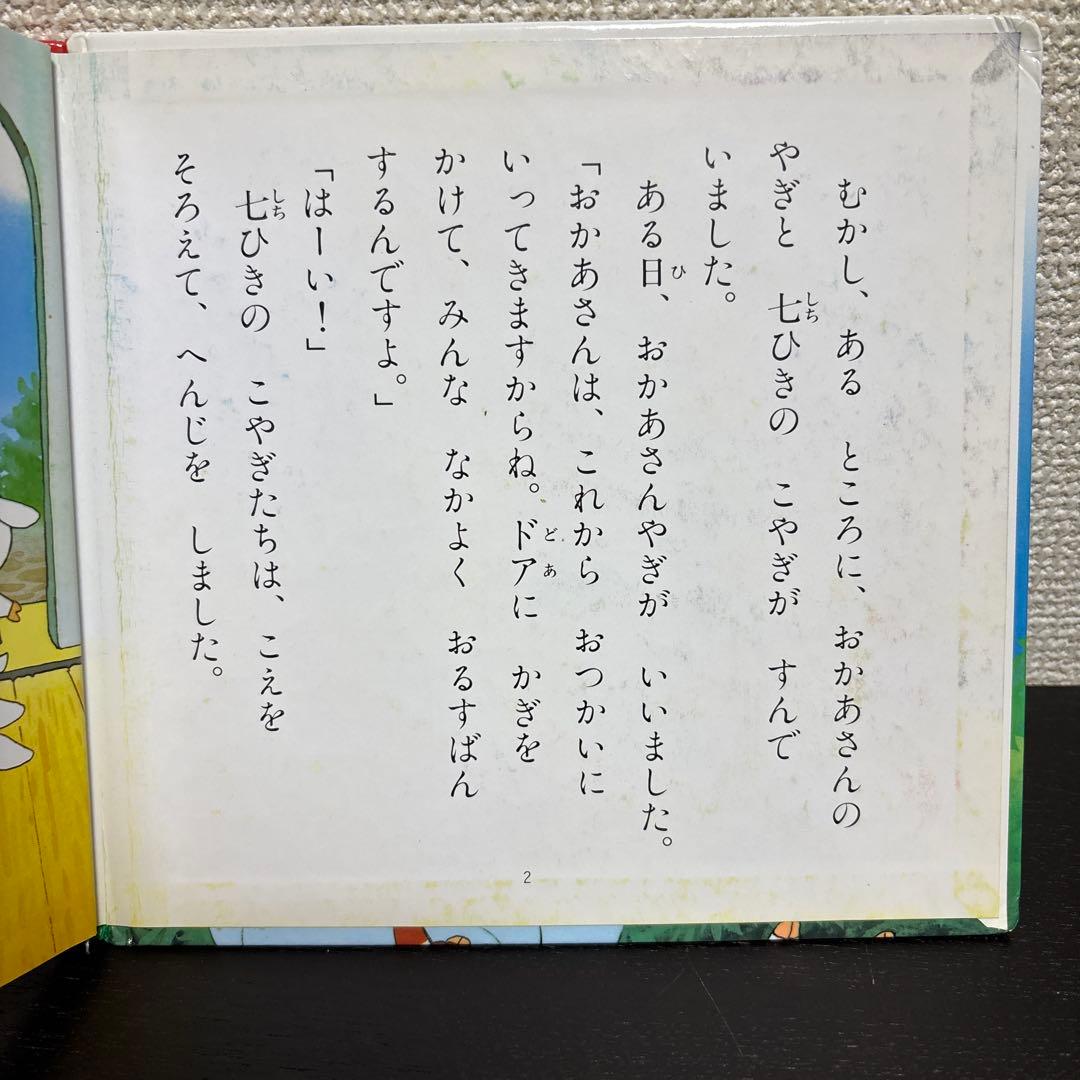 むかし、ある　ところに、おかあさんの
やぎと　七ひきの　こやぎが　すんで
いました。
ある日、おかあさんやぎが　いいました。
「おかあさんは、これから　おつかいに
いってきますからね。ドアに　かぎを
かけて、みんな　なかよく　おるすばん
するんですよ。」
「はーい！」
七ひきの　こやぎたちは、こえを
そろえて、へんじを　しました。
2